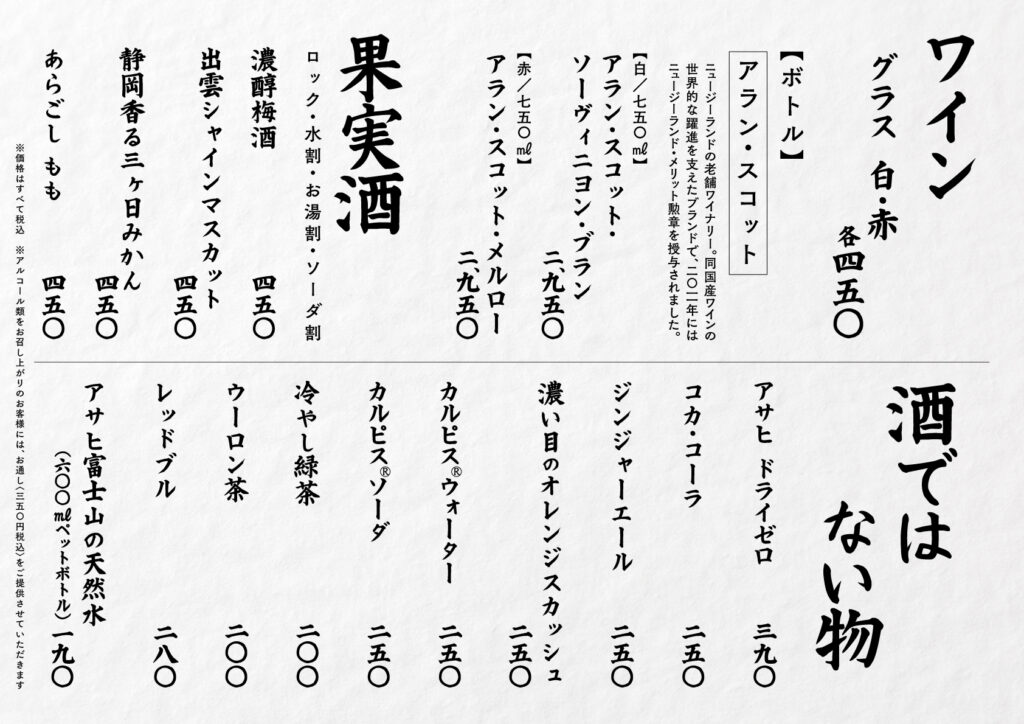 ワイン
グラス 白・赤
各四五〇
【ボトル】
アラン・スコット
ニュージーランドの老舗ワイナリー。同国産ワインの
世界的な躍進を支えたブランドで、二〇一一年には
ニュージーランド・メリット勲章を授与されました。
【白／七五〇㎖】
アラン・スコット・
ソーヴィニヨン・ブラン
二、九五〇
【赤／七五〇㎖】
アラン・スコット・メルロー
二、九五〇
果実酒
ロック・水割・お湯割・ソーダ割
濃醇梅酒 四五〇
出雲シャインマスカット
四五〇
静岡香る三ヶ日みかん
四五〇
あらごし もも 四五〇
酒では
ない物
アサヒ ドライゼロ 三九〇
コカ・コーラ 二五〇
ジンジャーエール 二五〇
濃い目のオレンジスカッシュ
二五〇
カルピス®ウォーター 二五〇
カルピス®ソーダ 二五〇
冷やし緑茶 二〇〇
ウーロン茶 二〇〇
レッドブル 二八〇
アサヒ富士山の天然水
（六〇〇㎖ペットボトル）一九〇
※価格はすべて税込 ※アルコール類をお召し上がりのお客様には、お通し（三五〇円税込）をご提供させていただきます